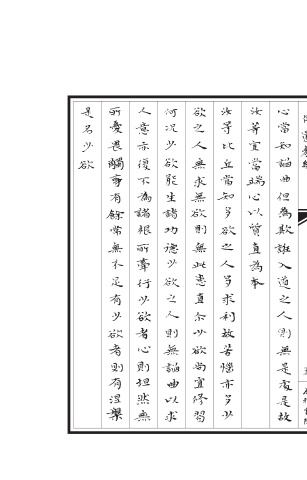 心當知諂曲但為欺誑入道之人則無是處是故
汝等宜當端心以質直為本
汝等比丘當知多欲之人多求利故苦惱亦多少
欲之人無求無欲則無此患直尔少欲尚宜修習
何況少欲能生諸功德少欲之人則無諂曲以求
人意亦復不為諸根所牽行少欲者心則坦然無
所憂畏觸事有餘常無不足有少欲者則有涅槃
是名少欲